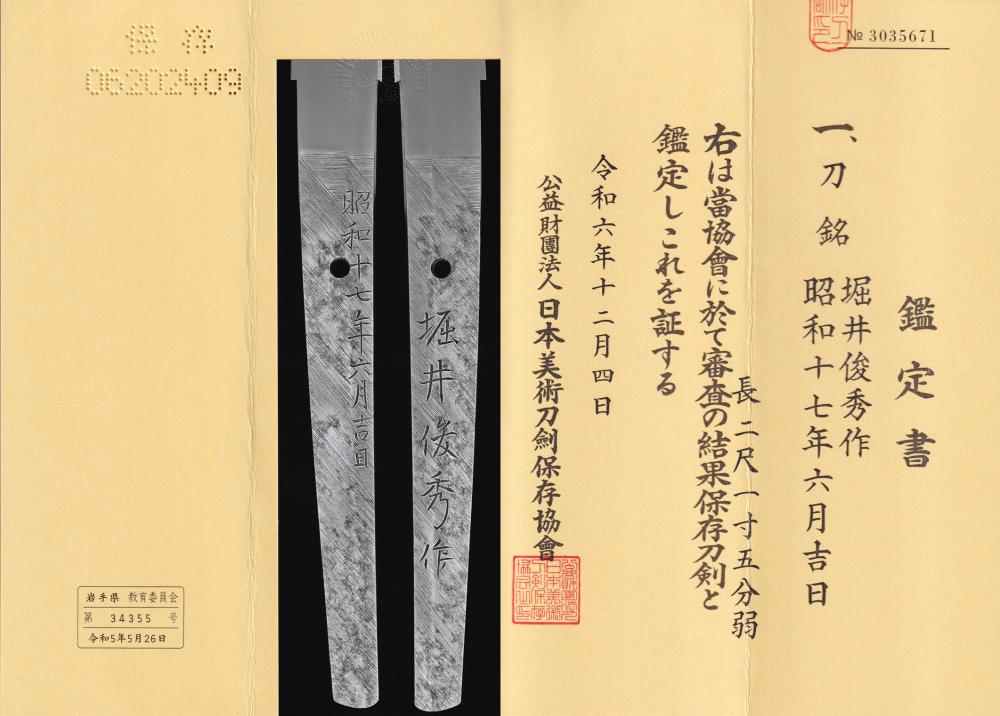 № 3035671
鑑定書
一、刀 銘 堀井俊秀作
昭和十七年六月吉日
長二尺一寸五分弱
右は當協會に於て審査の結果保存刀剣と
鑑定しこれを証する
令和六年十二月四日
公益財團法人 日本美術刀劍保存協會
堀井俊秀作
昭和十七年六月吉日
保存
06202409
岩手県 教育委員会
第 34355 号
令和5年5月26日